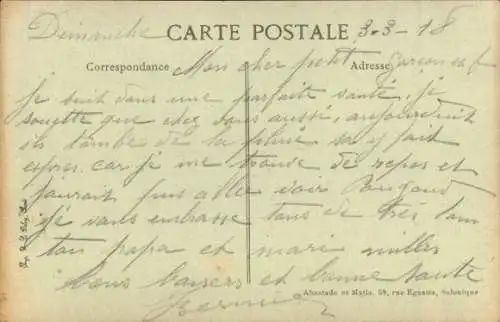 Dimanche CARTE POSTALE 3-3-18
Correspondance Mon cher petit Adresse garçon et
je suit dans une parfaite santé, je
souette que chez vous aussi, aujourdhuit
ils tombe de la pluie sa y fait
expres car je me trouve de repos et
jaurait pus allee voir Rougaud
je vous embrasse tous de très loin
ton papa et mari milles
bons baisers et bonne sante
Abastado et Matis, 59, rue Egnatia, Salonique